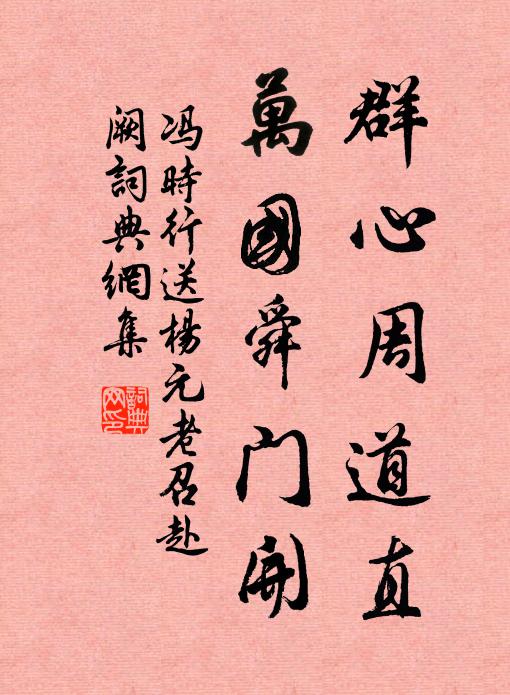 群心周道直
萬國舜门開
冯時行送楊元老召赴
阙詞典網集
詞典
网印